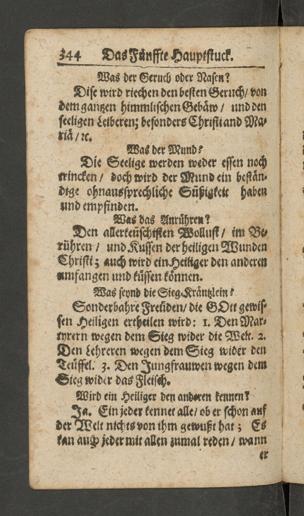 344 Das Fünffte Hauptstuck.
Was der Geruch oder Nasen?
Dise wird riechen den besten Geruch / von
dem gantzen himmlischen Gebäw / und den
seeligen Leiberen; besonders Christi and Ma-
riä / ꝛc.
Was der Mund?
Die Seelige werden weder essen noch
trincken / doch wird der Mund ein bestän-
dige ohnaussprechliche Süßigkeit haben
und empfinden.
Was das Anrühren?
Den allerkeüschisten Wollust / im Be-
rühren / und Kussen der heiligen Wunden
Christi; auch wird ein Heiliger den anderen
umfangen und küssen können.
Was seynd die Sieg-Kräntzlein?
Sonderbahre Freüden / die GOtt gewis-
sen Heiligen ertheilen wird: 1. Den Mar-
tyrern wegen dem Sieg wider die Welt. 2.
Den Lehreren wegen dem Sieg wider den
Teüffel. 3. Den Jungfrauwen wegen dem
Sieg wider das Fleisch.
Wird ein Heiliger den anderen kennen?
Ja. Ein jeder kennet alle / ob er schon auf
der Welt nichts von ihm gewußt hat; Es
kan auch jeder mit allen zumal reden / wann
er